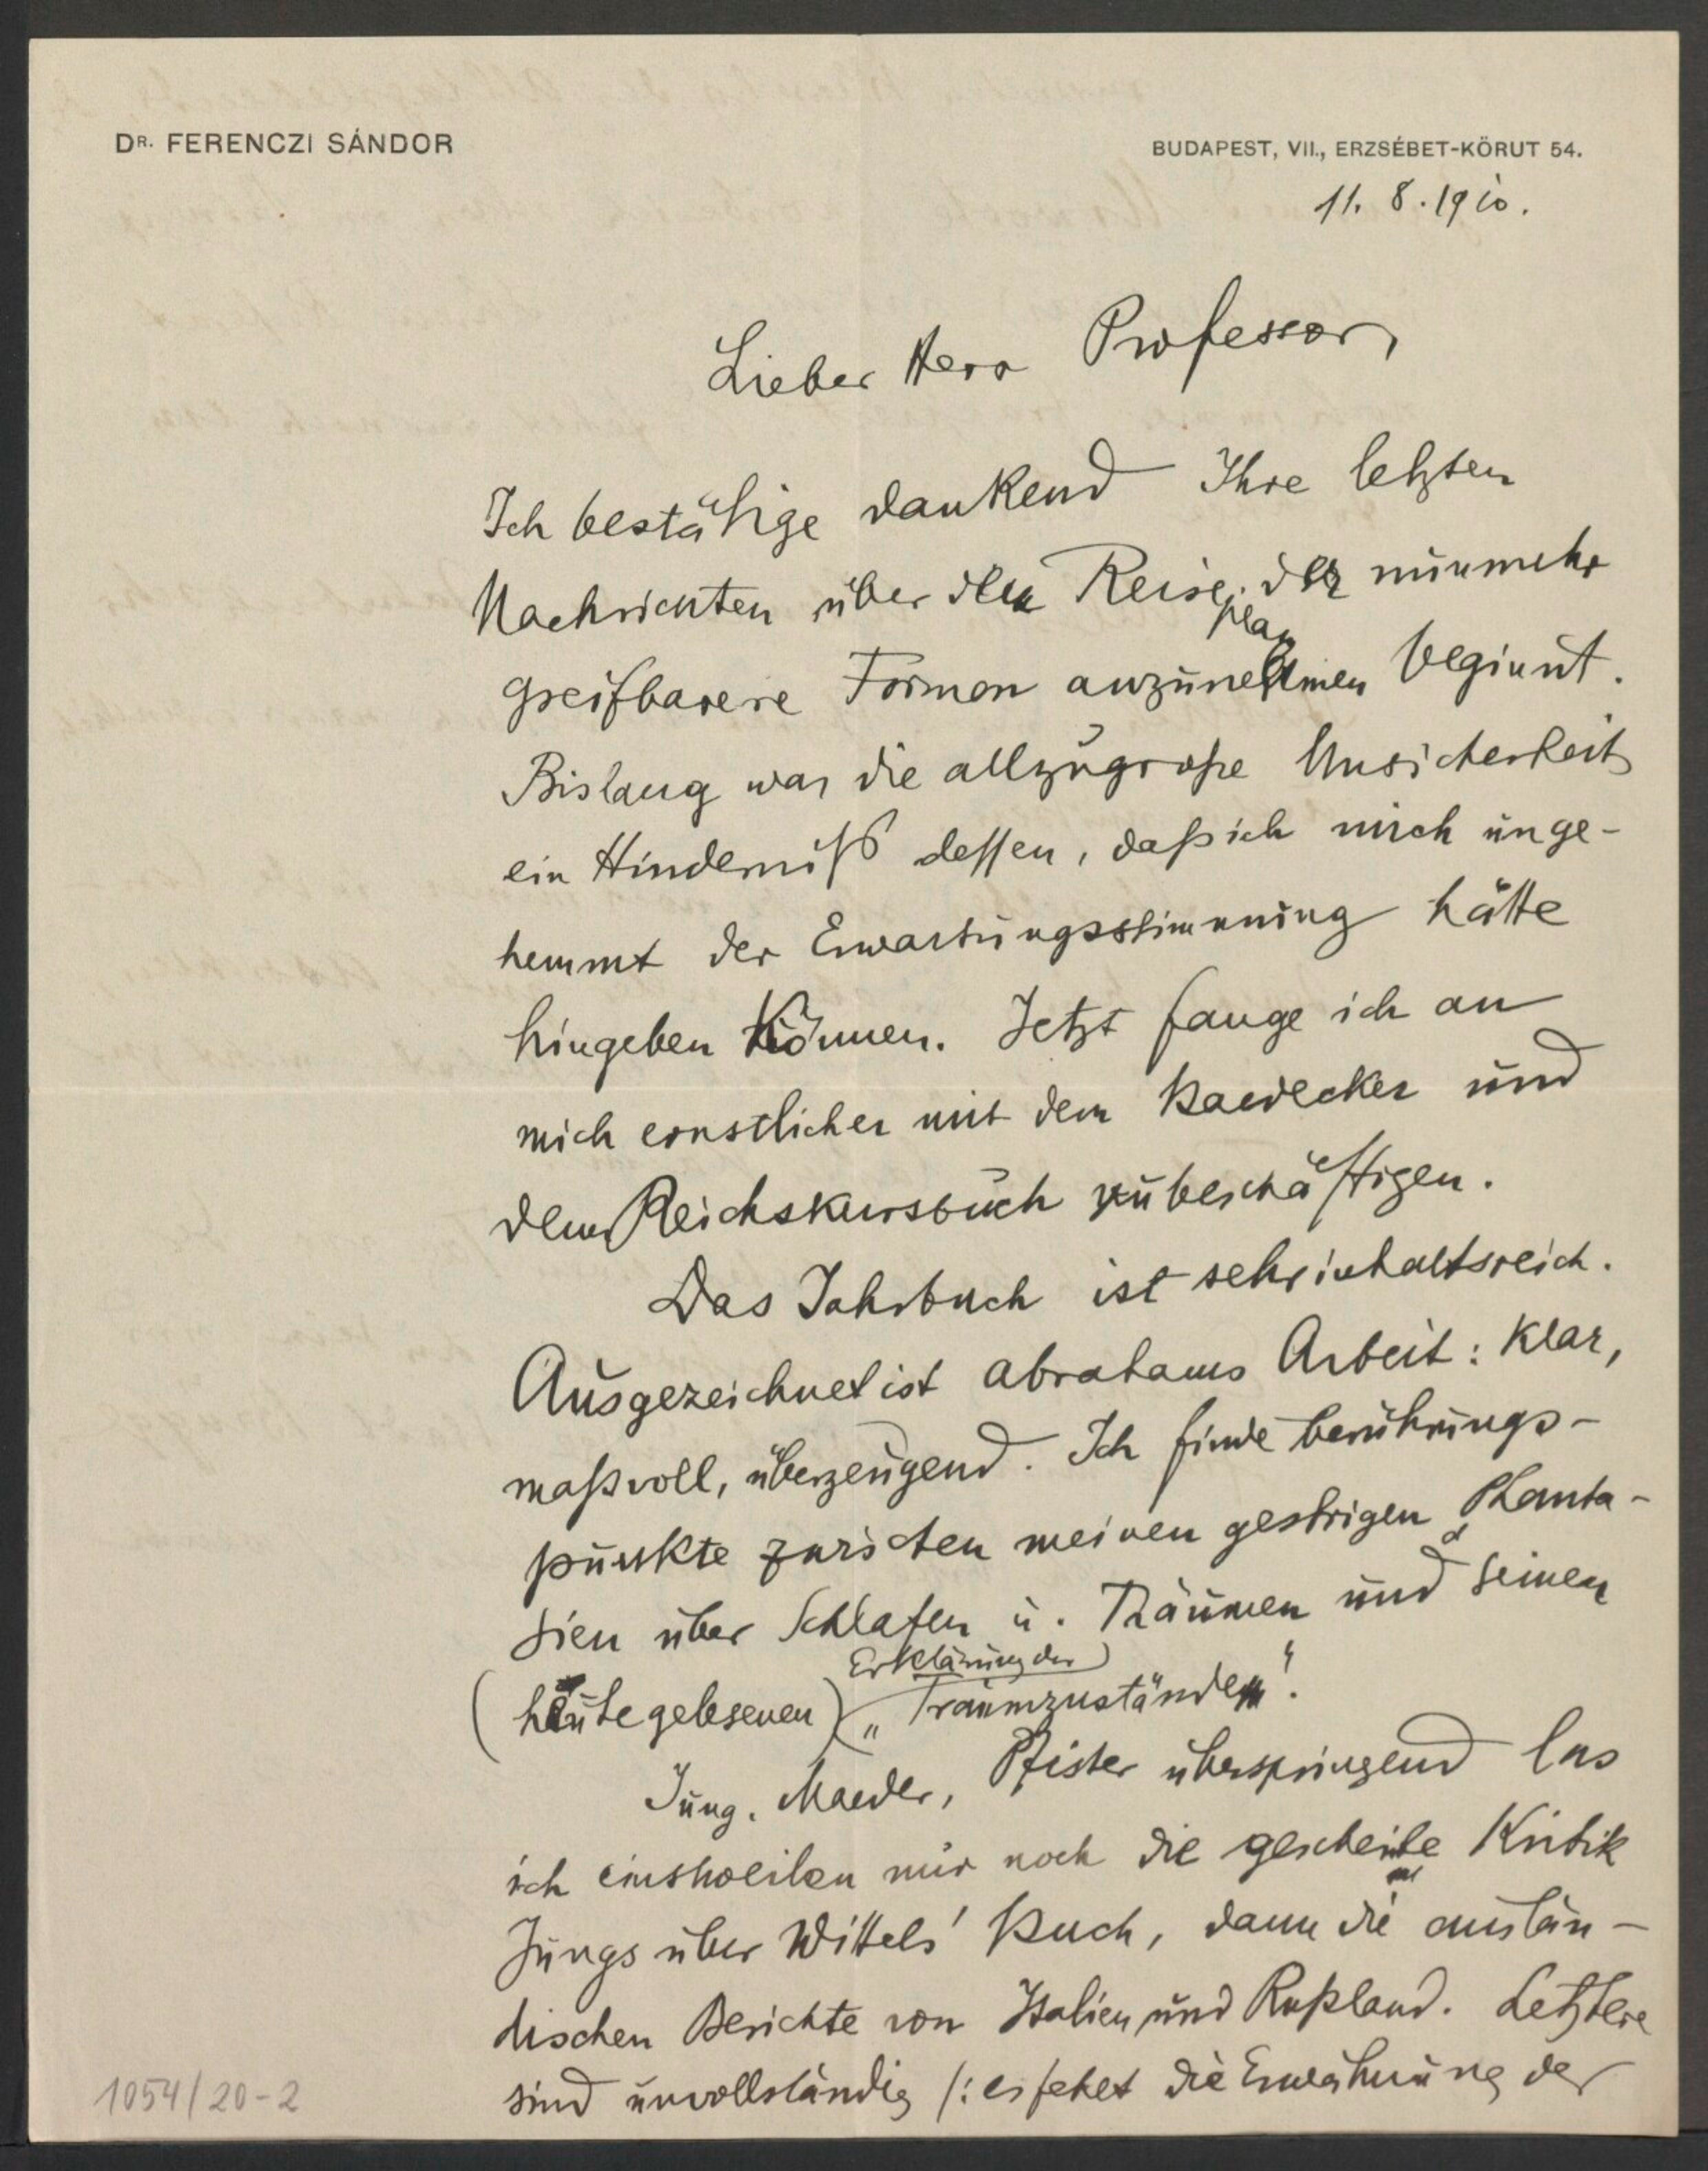 DR. FERENCZI SÁNDOR
BUDAPEST, VII., ERZSÉBET-KÖRUT 54.
11. 8. 1910.
Lieber Herr Professor,
Ich bestätige dankend Ihre letzten
Nachrichten über den Reiseplan, der nunmehr
greifbarere Formen anzunehmen beginnt.
Bislang war die allzugroße Unsicherheit
ein Hinderniß dessen, daß ich mich unge-
hemmt der Erwartungsstimmung hätte
hingeben können. Jetzt fange ich an
mich ernstlicher mit dem Baedecker und
dem Reichskursbuch zu beschäftigen.
Das Jahrbuch ist sehr inhaltsreich.
Ausgezeichnet ist Abrahams Arbeit: klar,
maßvoll, überzeugend. Ich finde berührungs-
punkte zwischen meinen gestrigen Phanta-
sien über Schlafen u. Träumen und seinen
(heute gelesenen) Erklärung der „Traumzustände“.
Jung, Maeder, Pfister überspringend las
ich einstweilen nur noch die gescheite Kritik
Jungs über Wittels' Buch, dann die auslän-
dischen Berichte von Italien und Rußland. Letztere
sind unvollständig /: es fehlt die Erwähnung der
1054/20-2